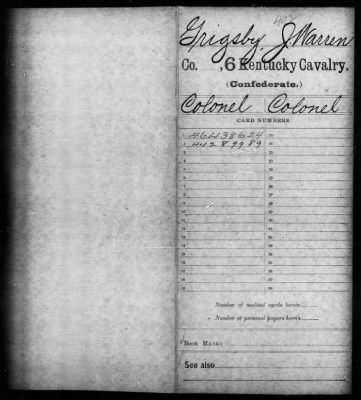 Grigsby, J. Warren
Co. , 6 Kentucky Cavalry.
(Confederate.)
Colonel Colonel
CARD NUMBERS
1 46438624
2 44289989
Number of medical cards herein
Number of personal papers herein
BOOK MARK:
See also